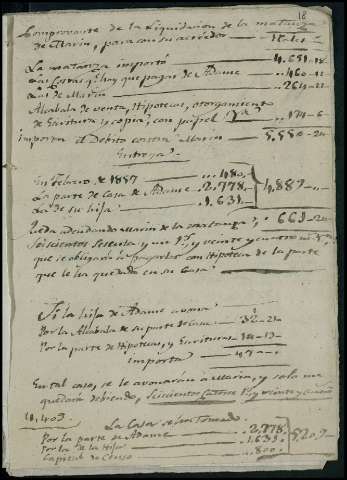 18
Comprovante de la Liquidacion de la matanza
de Marin, para con su acrehedor
La matanza importó 4.651-18
Las Costas q.e hay que pagar de Adame 460-
Las de Marin 264-
Alcabala de venta, Hipotecas, otorgamiento
de Escritura y copia, con papel
importa el Debito contra Marin 5.550-24
Entrega.
En Febrero de 1837 480
La parte de Casa de Adame 2.778
La de su hija 1.631
4.889
Queda adeudando Marin de la matanza 661-24
Seiscientos sesenta y un r.s y veinte y cuatro m.s
que se obligará con Hipoteca de la parte
que le ha quedado en su Casa
Si la hija de Adame
Por la Alcabala de su parte de casa 32-21
Por la parte de Hipotecas, y Escritura 14-13
importa 47
En tal caso, se le avonarán á Marin, y solo
quedará debiendo, seiscientos catorce r.s y veinte y cuatro
La Casa se ha Tomado.
Por la parte de Adame 2.778
Por la de la Hija 1.631
Capital de Censo 800
5.209